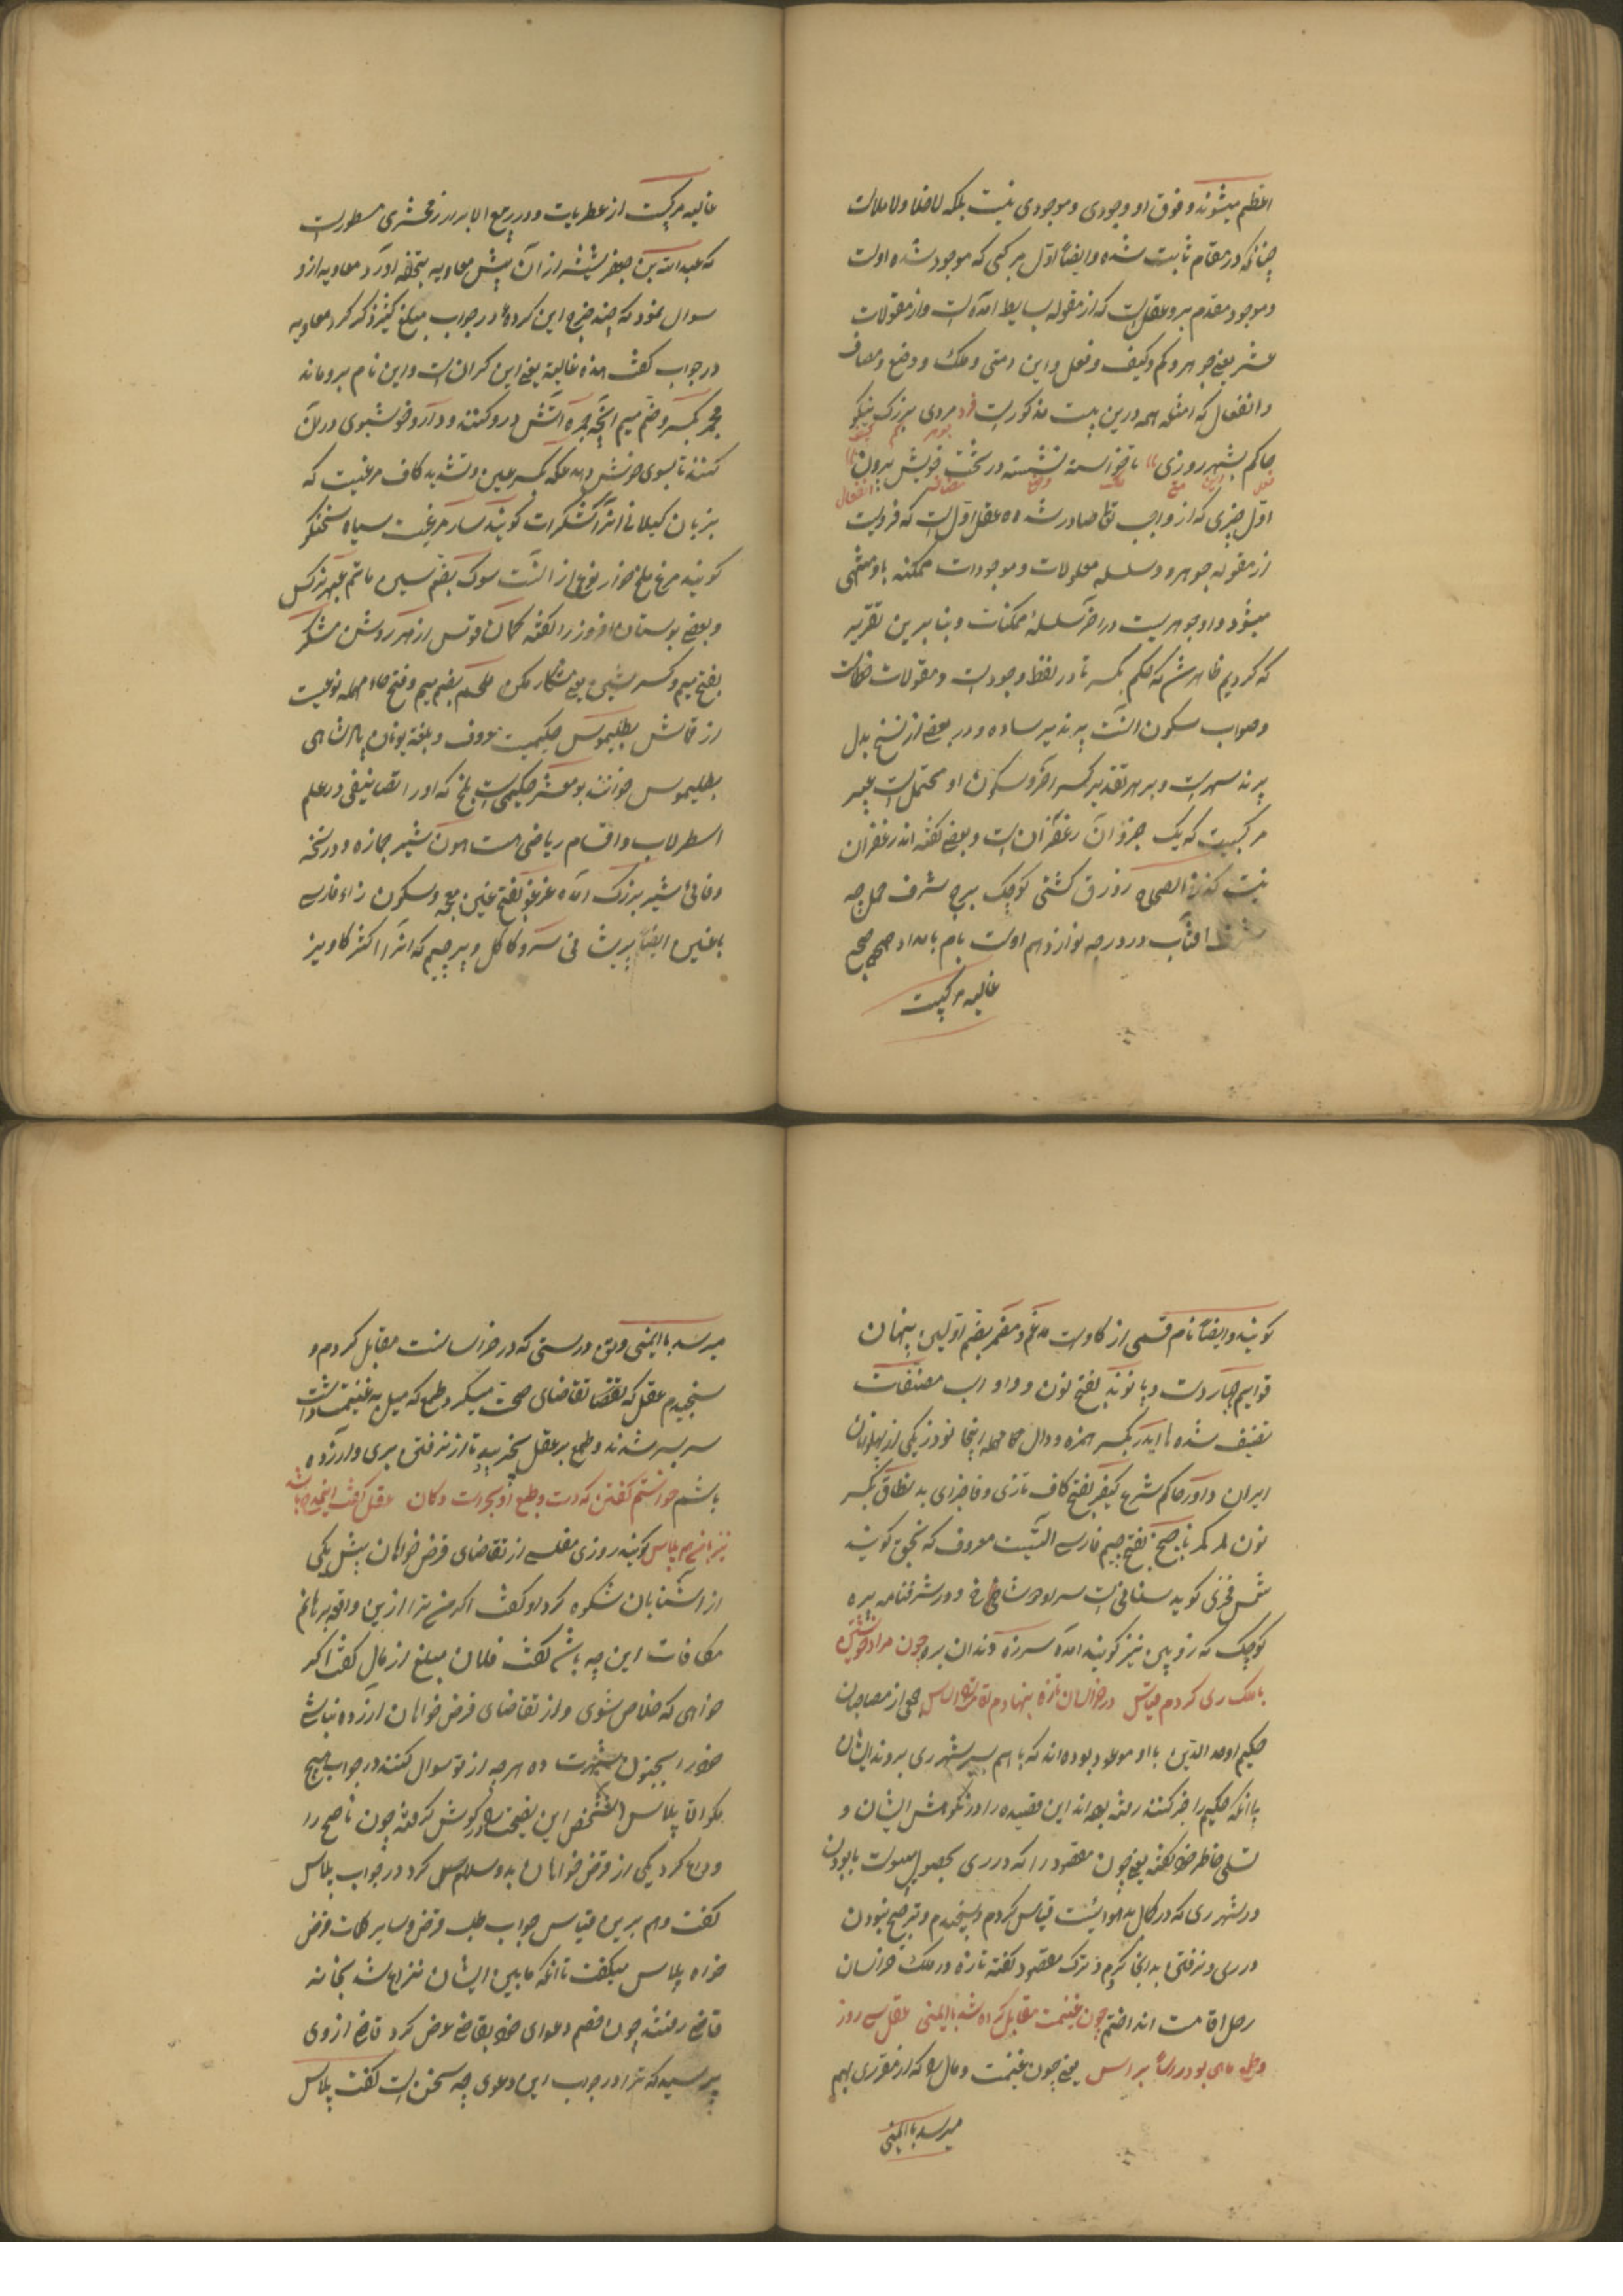 اعظم میشوند و فوق او وجودی و موجودی نیست بلکه لاخلا و لاملاست
چنانکه در مقام ثابت شده و ایضاً اول مرکبی که موجود شده اوست
و موجود مقدم برو عقلست که از مقوله بسایط آمده است و از مقولات
عشر یعنی جوهر و کم و کیف و فعل و این و متی و ملک و وضع و مضاف
و انفعال که امثله همه درین بیت مذکورست فرد مردی بزرگ نیکو
جوهر کم کیف
حاکم بشهر روزی با خواسته نشسته در تخت خویش پیروز
فعل این متی ملک وضع مضاف انفعال
اول چیزی که از واجب تعالی صادر شده عقل اول است که فردیست
از مقوله جوهر و سلسله معلولات و موجودات ممکنه باو منتهی
میشود و او جوهریست در آخر سلسلهٔ ممکنات و بنابرین تقریر
که کردیم ظاهر شد که حکم بکسر تا در لفظ وجودست و مقولات خطاست
و صواب سکون آنست پرند پر ساده و در بعضی از نسخ بدل
پرند سهرست و بر هر تقدیر کسر آخر و سکون او محتملست عبیر
مرکبیست که یک جزو آن زعفرانست و بعضی گفته‌اند زعفران
نیست کذا فی الصحاح زورق کشتی کوچک برج شرف حمل چه
شرف آفتاب در درجه نوازدهم اوست بام بامداد صبح صحیح
غالیه مرکبیست
غالیه مرکبیست از عطریات و در ربیع الابرار زمخشری مسطورست
که عبدالله بن جعفر شیشه از آن پیش معاویه بتحفه آورد معاویه ازو
سوال نمود که چند خرج این کردهٔ در جواب مبلغ کثیر ذکر کرد معاویه
در جواب گفت هذه غالیة یعنی این گرانست و این نام برو ماند
مجمر بکسر و ضم میم آنچه جمره آتش درو کنند و دارو خوشبوی در آن
کنند تا بوی خوش دهد عکه بکسر عین و تشدید کاف مرغیست که
بزبان گیلانی آنرا کشکرات گویند سار مرغیست سیاه سخنگو
گویند مرغ ملخ خوار نوعی از آنست سوک بضم سین ماتم عبهر نرکس
و بعضی بوستان افروز را گفته کمان قوس ازهر روشن مشکر
بفتح میم و کسر شین یعنی شکار مکن ملحم بضم میم و فتح حاء مهمله نوعیست
از قماش بطلیموس حکیمیست معروف و بلغة یونان پادشاهی
بطلیموس خوانند بومعشر حکیمیست بلخ که او را تصانیفی در علم
اسطرلاب و اقسام ریاضی هست هون شیر جمازه و در نسخه
وفائی شیر بزرگ آمده غژغو بفتح غین معجمه و سکون زاء فارسی
با غین ایضاً پریست فی سرو کاکل و پرچم که آنرا اکثر کاویز
گویند و ایضاً نام قسمی از گاوست مدغم و مضمر بضم اولین پنهان
قوایم چهار دست و پا نوند بفتح نون و واو اسب مصنفات
تصنیف شده‌ها ایدر بکسر همزه و دال مهمله اینجا نوذر یکی از پهلوانان
ایران داور حاکم شرع کیفر بفتح کاف تازی و فا جزای بد نطاق بکسر
نون کمر کمر باز چخ بفتح جیم فارسی آلتیست معروف که نجق گویند
شمس فخری گوید سنانی است سر او دو شاخ و در شرفنامه بیره
کوچک که زوپین نیز گویند آمده سرزه دندان بره چون مراد خویش
با ملک ری کردم قیاس در خراسان تازه بنهادم اقامت را اساس جمعی از مصاحبان
حکیم اوحدالدین با او موعود بوده‌اند که باهم بسیر شهر ری بروند ایشان
با آنکه حکیم را خبر کنند رفته بوده‌اند این قصیده را در نکوهش ایشان و
تسلی خاطر خود گفته یعنی چون مقصود را که در ری بحصول پیوست با بودن
در شهر ری که در کمال بدهوائیست قیاس کردم و سنجیدم و ترجیح نبودن
در ری و نرفتن بدانجا کردم و ترک مقصود گفته تازه در ملک خراسان
رحل اقامت انداختم چون غنیمت مقابل کرده شد با ایمنی عقل سی روز
و طمع ماهی بود راسا براس یعنی چون غنیمت و مال را که از مقرری بهم
میرسد با ایمنی
میرسد با ایمنی و تن درستی که در خراسانست مقابل کردم و
سنجیدم عقل که نقصا تقاضای صحت میکرد و طمع که میل به غنیمت داشت
سر بسر شدند و طمع بر عقل نچربید تا از نرفتن بری دل آزرده
باشم خواستم گفتن که دست و طبع او بحرست و کان عقل گفت این مدح باشد
نیز با من هم پلاس گویند روزی مفلسی از تقاضای قرض خواهان پیش یکی
از آشنایان شکوه کرد او گفت اگر من ترا ازین واقعه برهانم
مکافات این چه باشد گفت فلان مبلغ از مال گفت اگر
خواهی که خلاص شوی و از تقاضای قرض خواهان آزرده نباشی
خود را بجنون شهرت ده هر چه از تو سوال کنند در جواب هیچ
مگو الا پلاس آن شخص این نصیحت را در گوش گرفته چون ناصح را
وداع کرد یکی از قرض خواهان بدو سلام کرد در جواب پلاس
گفت و هم برین قیاس جواب طلب قرض و سایر کلمات قرض
خواه پلاس میگفت تا آنکه مابین ایشان نزاع شد بخانه
قاضی رفتند چون خصم دعوای خود بقاضی عرض کرد قاضی از وی
پرسید که ترا در جواب این دعوی چه سخن است گفت پلاس